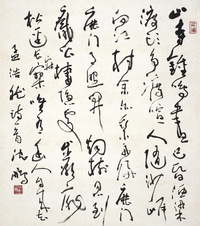 山寺鐘鳴晝已昏漁梁
渡頭爭渡喧人隨沙岸
向江村余亦乘舟歸鹿門
鹿門月照開煙樹忽到
龐公棲隱處巖扉
松徑長寂寥唯有幽人自來去
孟浩然詩一首沈鵬